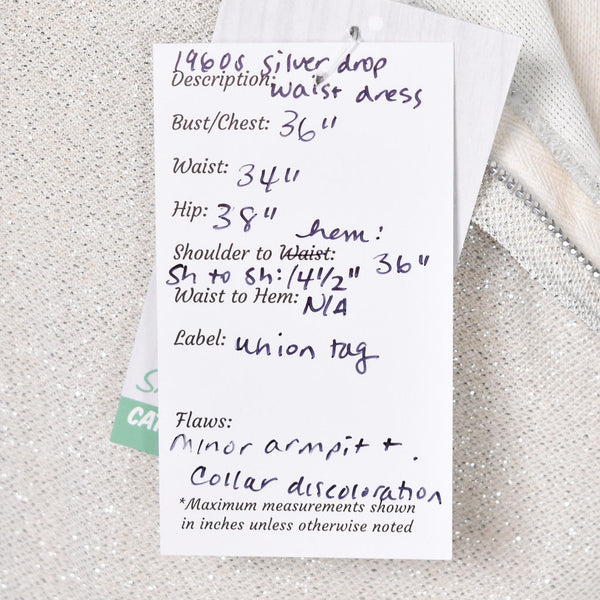 1960s silver drop
Description: waist dress
Bust/Chest: 36"
Waist: 34"
Hip: 38"
hem:
Shoulder to Waist: 36"
Sh to Sh: 14 1/2"
Waist to Hem: N/A
Label: union tag
Flaws:
Minor armpit +
Collar discoloration
*Maximum measurements shown
in inches unless otherwise noted
CAT